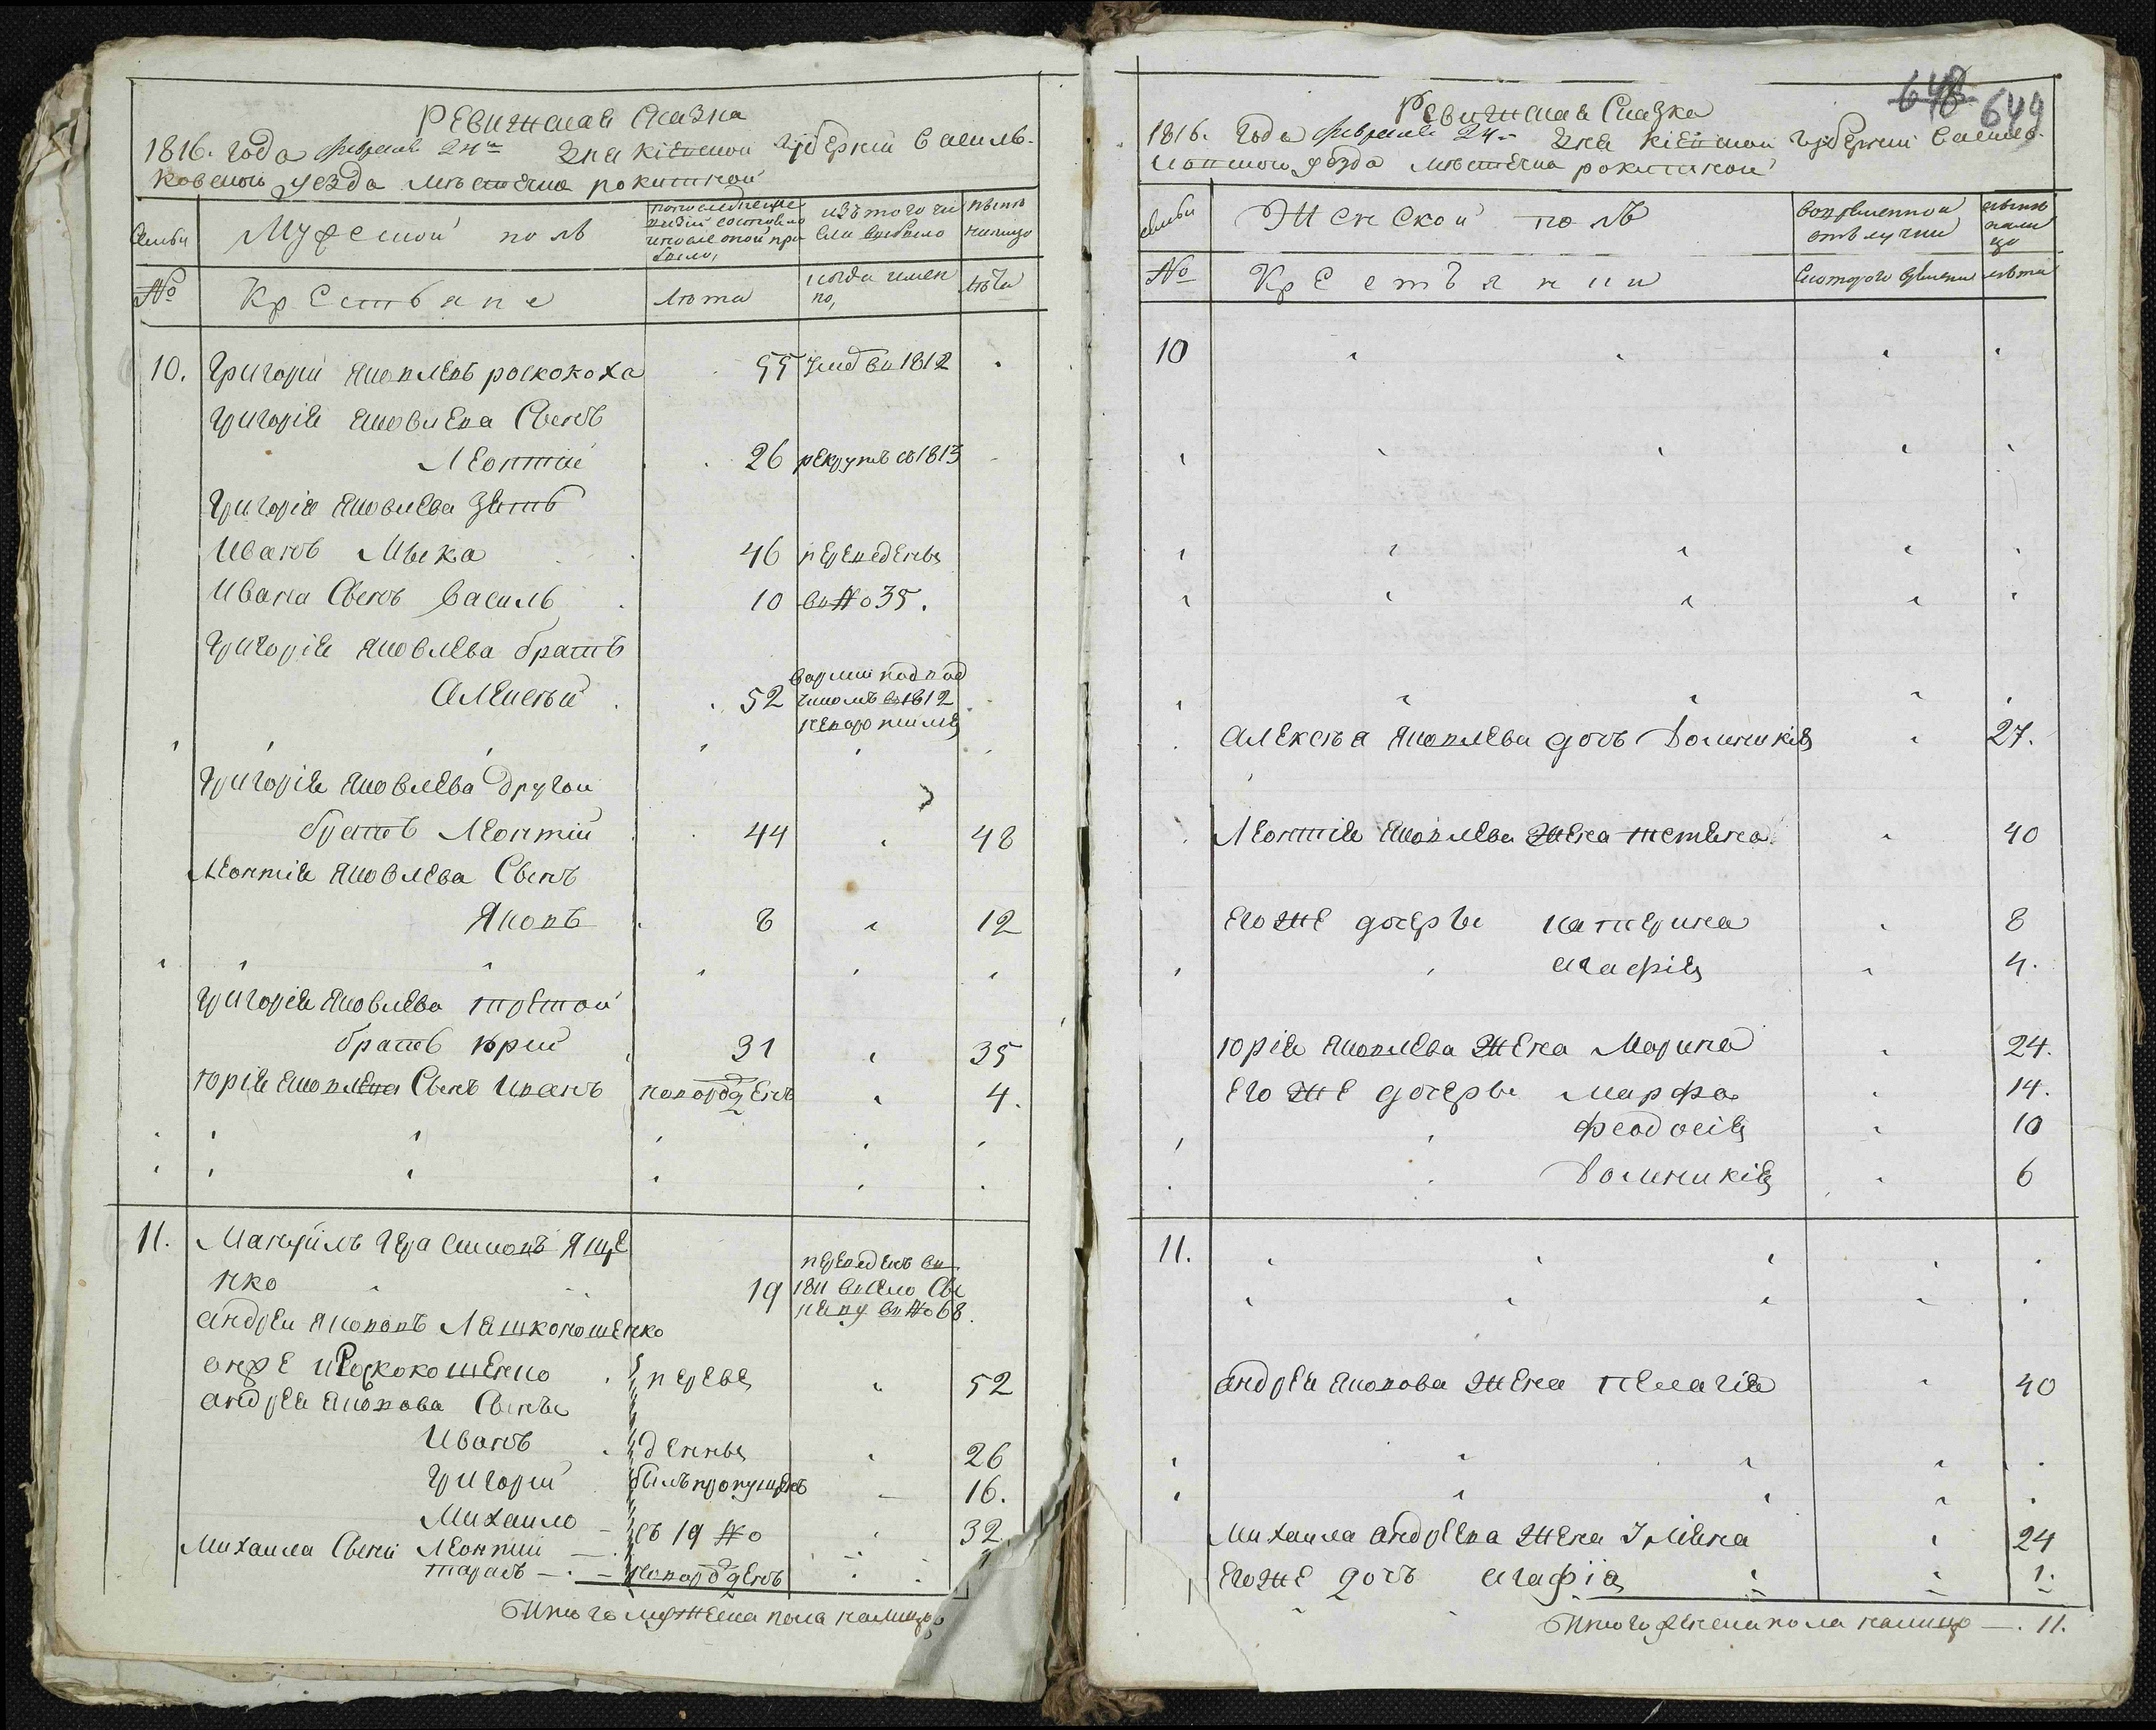 Ревижская Сказка
1816. года февраля 24го дня Кіевской губерніи Василь-
ковского уезда местечка рокитной
Семьи
Мужеской полъ
по последней
ревизіи состояло
и после оной при
было,
изъ того чи
сла выбыло
ныне
налицо
№
Крестьяне
лета
когда имен
но,
лета
10. Григорий Яковлевъ роскокоха 55 умеръ въ 1812
Григорія Яковлева Сынъ
Леонтий 26 рекрутъ въ 1813
Григорія Яковлева Зять
Иванъ Мыка 46 переведены
Ивана Сынъ Василь 10 въ № 35.
Григорія Яковлева братъ
Алексей 52
въ 1812
Григорія Яковлева другои
братъ Леонтий 44 48
Леонтія Яковлева Сынъ
Яковъ 8 12
Григорія Яковлева третой
братъ Юрий 31 35
Юрія Яковлева Сынъ Иванъ новорожденъ 4.
11. Мануйлъ Герасимовъ Яще
нко 19
переведенъ въ
1811 въ село
въ № 68.
Андреи Якововъ Лашкономенко
онже и Роскокошенко переве 52
Андрея Яковова Сыны
Иванъ дены 26
Григорий былъ пропущенъ 16.
Михаило съ 19 № 32
Михаила Сыны Леонтий
тарасъ новорожденъ
Итого мужеска пола налицо
648 649
Ревижская Сказка
1816. года февраля 24. дня Кіевской губерніи Василь-
ковского уезда местечка рокитной
семьи
Женской полъ
во временной
отлучки
ныне
нали
цо
№
Крестьянки
Скоторого времени
лета
10
Алексея Яковлева дочь Домникія 27.
Леонтія Яковлева жена тетяна 40
Егоже дочеры катерина 8
агафія 4.
Юрія Яковлева жена Марина 24.
Егоже дочеры марфа 14.
феодосія 10
Домникія 6
11.
Андрея Яковова жена пелагія 40
Михаила Андреева жена Уляна 24
Егоже дочь агафія 1.
Итого женска пола налицо — 11.